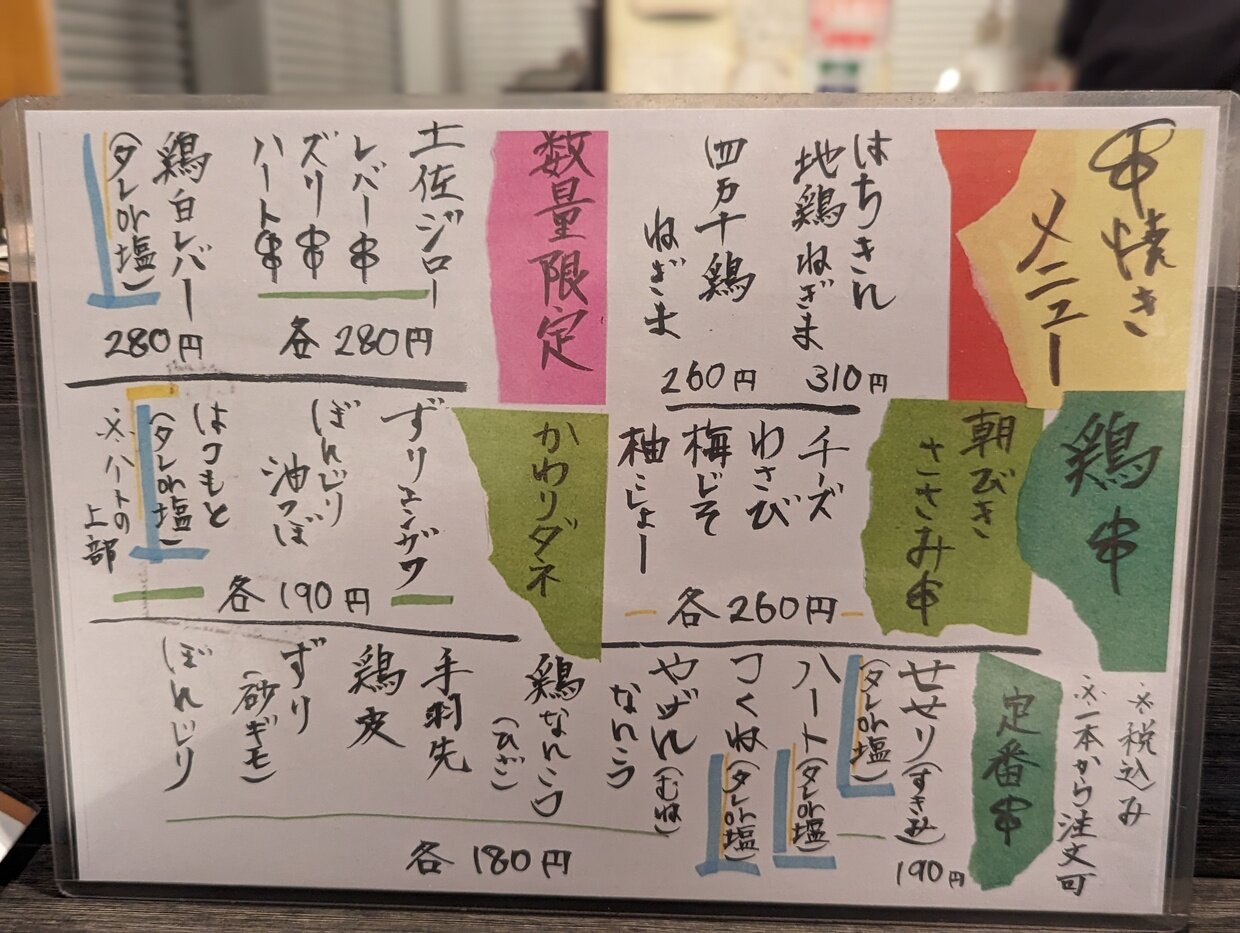 串焼き
メニュー
はちきん
地鶏ねぎま
310円
四万十鶏
ねぎま
260円
数量限定
土佐ジロー
レバー串
ズリ串
ハート串
各280円
鶏白レバー
(タレor塩)
280円
鶏串
※税込み
※一本から注文可
朝びき
ささみ串
チーズ
わさび
梅じそ
柚こしょー
各260円
かわりダネ
ずりエンガワ
ぼんじり
油つぼ
はつもと
(タレor塩)
※ハートの
上部
各190円
定番串
せせり(すきみ)
(タレor塩)
190円
ハート(タレor塩)
つくね(タレor塩)
やげん(むね)
なんこつ
鶏なんこつ
(ひざ)
手羽先
鶏皮
ずり
(砂ギモ)
ぼんじり
各180円